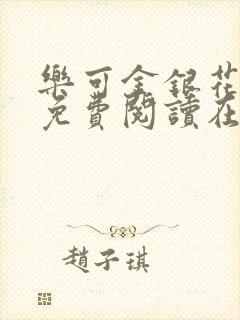 樂可金銀花
免費閱讀在
趙子琪